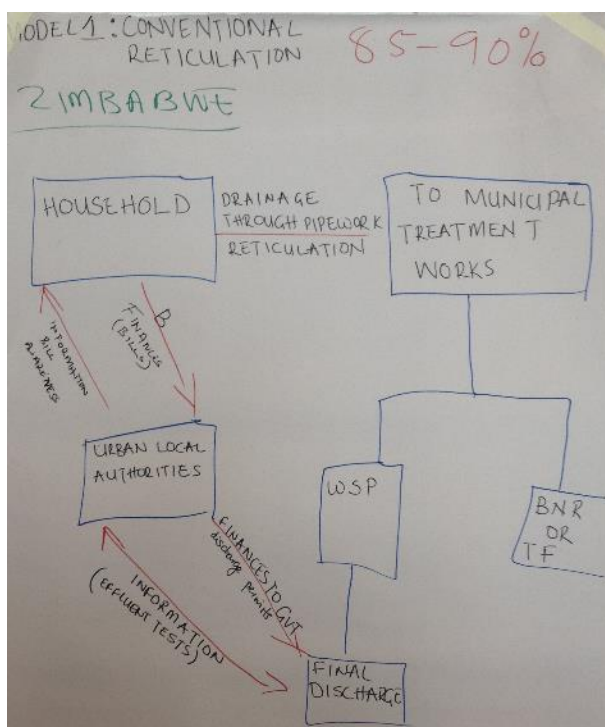 MODEL 1: CONVENTIONAL
RETICULATION
85-90%
ZIMBABWE
HOUSEHOLD
DRAINAGE
THROUGH PIPEWORK
RETICULATION
TO MUNICIPAL
TREATMENT
WORKS
INFORMATION
BILL
AWARENESS
B
FINANCES
(BILLS)
URBAN LOCAL
AUTHORITIES
WSP
BNR
OR
TF
FINANCES TO GVT
discharge permits
INFORMATION
(EFFLUENT TESTS)
FINAL
DISCHARGE